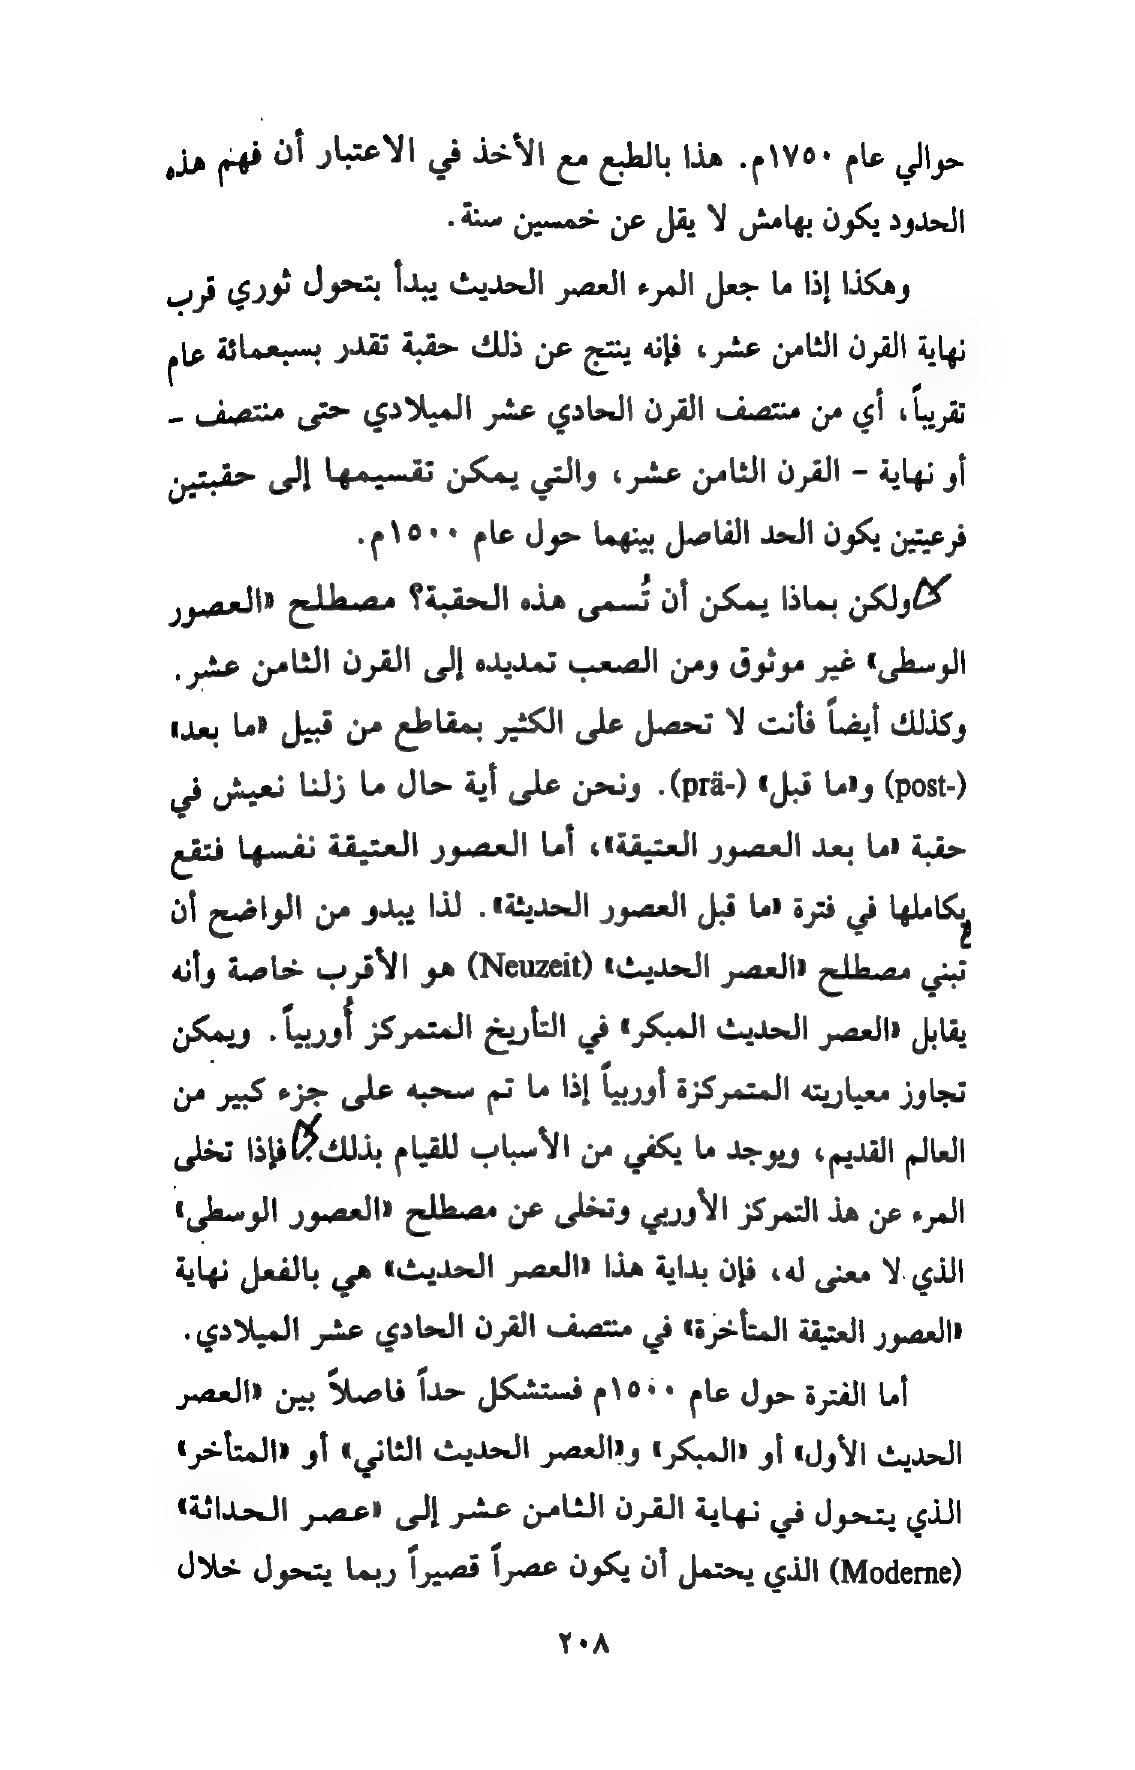 حوالي عام ١٧٥٠م. هذا بالطبع مع الأخذ في الاعتبار أن فهم هذه
الحدود يكون بهامش لا يقل عن خمسين سنة.
وهكذا إذا ما جعل المرء العصر الحديث يبدأ بتحول ثوري قرب
نهاية القرن الثامن عشر، فإنه ينتج عن ذلك حقبة تقدر بسبعمائة عام
تقريباً، أي من منتصف القرن الحادي عشر الميلادي حتى منتصف –
أو نهاية – القرن الثامن عشر، والتي يمكن تقسيمها إلى حقبتين
فرعيتين يكون الحد الفاصل بينهما حول عام ١٥٠٠م.
ولكن بماذا يمكن أن تُسمى هذه الحقبة؟ مصطلح «العصور
الوسطى» غير موثوق ومن الصعب تمديده إلى القرن الثامن عشر.
وكذلك أيضاً فأنت لا تحصل على الكثير بمقاطع من قبيل «ما بعد»
(post-) و«ما قبل» (prä-). ونحن على أية حال ما زلنا نعيش في
حقبة «ما بعد العصور العتيقة»، أما العصور العتيقة نفسها فتقع
بكاملها في فترة «ما قبل العصور الحديثة». لذا يبدو من الواضح أن
تبني مصطلح «العصر الحديث» (Neuzeit) هو الأقرب خاصة وأنه
يقابل «العصر الحديث المبكر» في التأريخ المتمركز أُوربياً. ويمكن
تجاوز معياريته المتمركزة أوربياً إذا ما تم سحبه على جزء كبير من
العالم القديم، ويوجد ما يكفي من الأسباب للقيام بذلك. فإذا تخلى
المرء عن هذ التمركز الأوربي وتخلى عن مصطلح «العصور الوسطى»
الذي لا معنى له، فإن بداية هذا «العصر الحديث» هي بالفعل نهاية
«العصور العتيقة المتأخرة» في منتصف القرن الحادي عشر الميلادي.
أما الفترة حول عام ١٥٠٠م فستشكل حداً فاصلاً بين «العصر
الحديث الأول» أو «المبكر» و«العصر الحديث الثاني» أو «المتأخر»
الذي يتحول في نهاية القرن الثامن عشر إلى «عصر الحداثة»
(Moderne) الذي يحتمل أن يكون عصراً قصيراً ربما يتحول خلال
٢٠٨